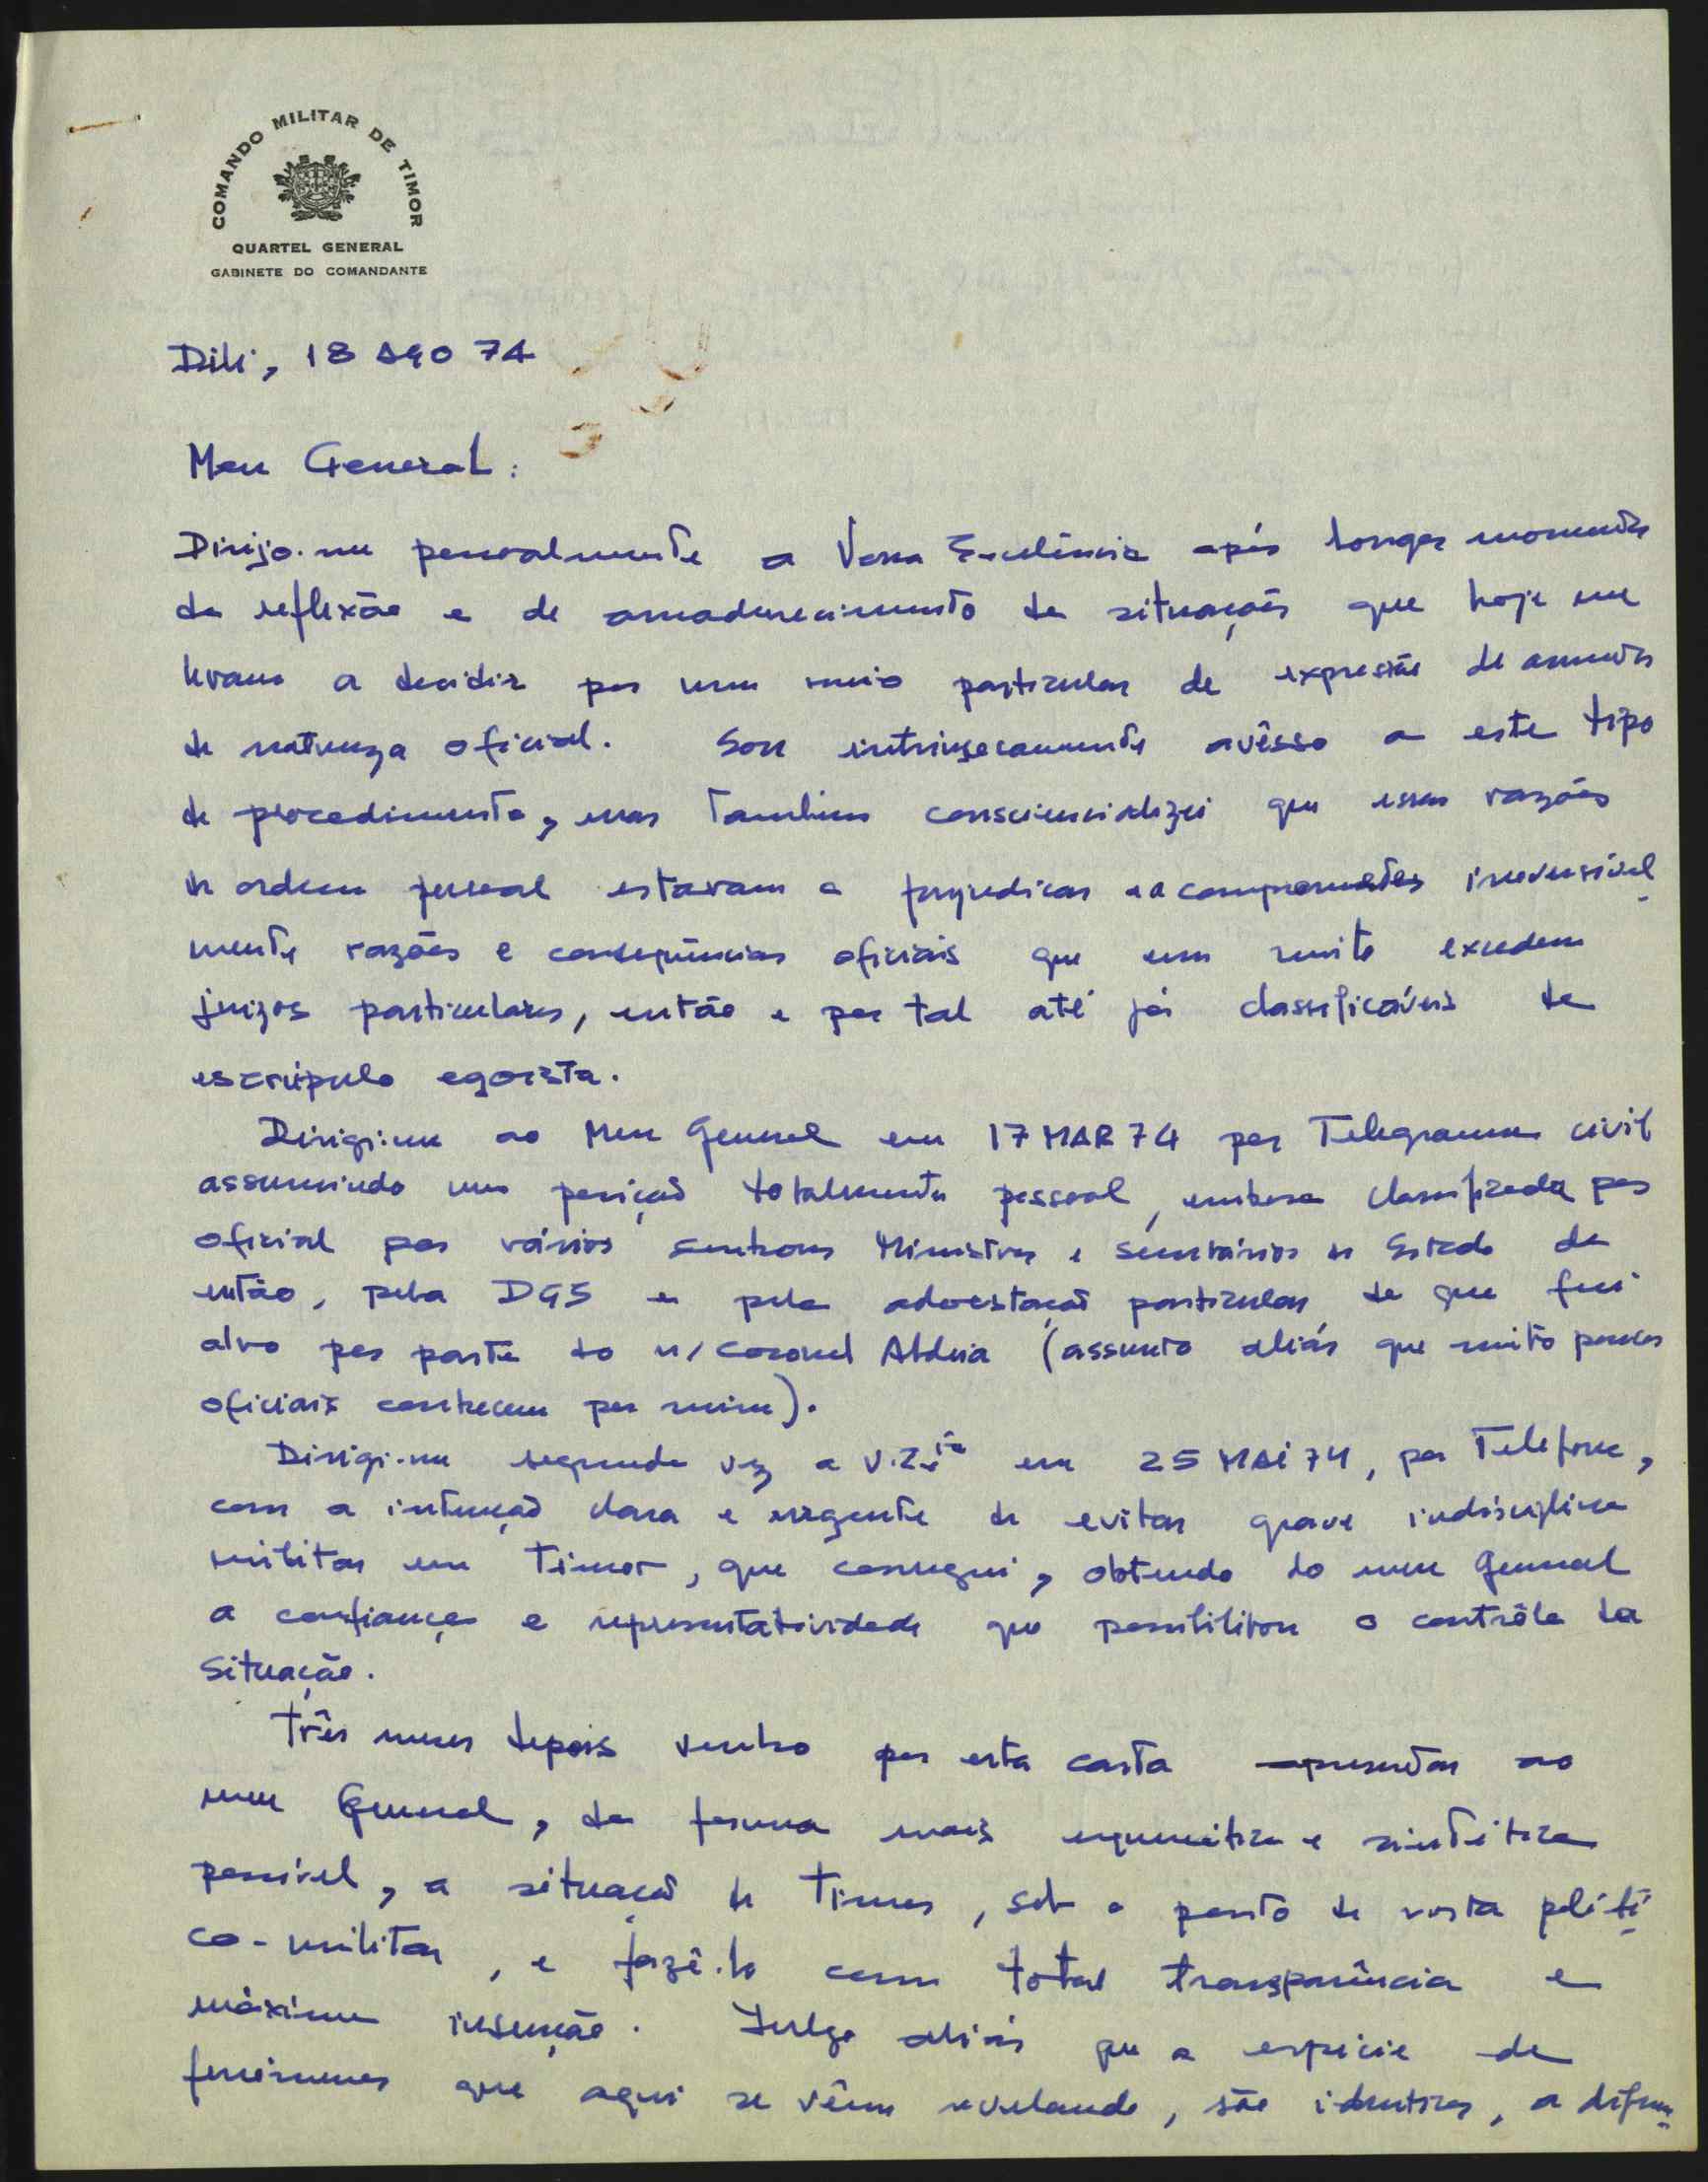 COMANDO MILITAR DE TIMOR
QUARTEL GENERAL
GABINETE DO COMANDANTE
Dili, 18 AGO 74
Meu General:
Dirijo-me pessoalmente a Vossa Excelência após longos momentos
de reflexão e de amadurecimento de situações que hoje me
levam a decidir por um meio particular de expressão de assuntos
de natureza oficial. Sou intrinsecamente avêsso a este tipo
de procedimento, mas também consciencializei que essas razões
de ordem pessoal estavam a prejudicar e a comprometer irreversível
mente razões e consequências oficiais que em muito excedem
juizos particulares, então e por tal até já classificáveis de
escrúpulo egoista.
Dirigi-me ao Meu General em 17 MAR 74 por Telegrama civil
assumindo uma posição totalmente pessoal, embora classificada por
oficial por vários senhores Ministros e Secretários de Estado de
então, pela DGS e pela admoestação particular de que fui
alvo por parte do n/ Coronel Aldeia (assunto aliás que muito poucos
oficiais conhecem por mim).
Dirigi-me segunda vez a V. Exia em 25 MAI 74, por Telefone,
com a intenção clara e urgente de evitar grave indisciplina
militar em Timor, que consegui, obtendo do meu General
a confiança e representatividade que possibilitou o contrôle da
situação.
Três meses depois venho por esta carta apresentar ao
meu General, da forma mais esquemática e sintética
possível, a situação de Timor, sob o ponto de vista políti
co-militar, e fazê-lo com total transparência e
máxima isenção. Julgo aliás que a espécie de
fenómenos que aqui se vêm revelando, são identicos, a diferen